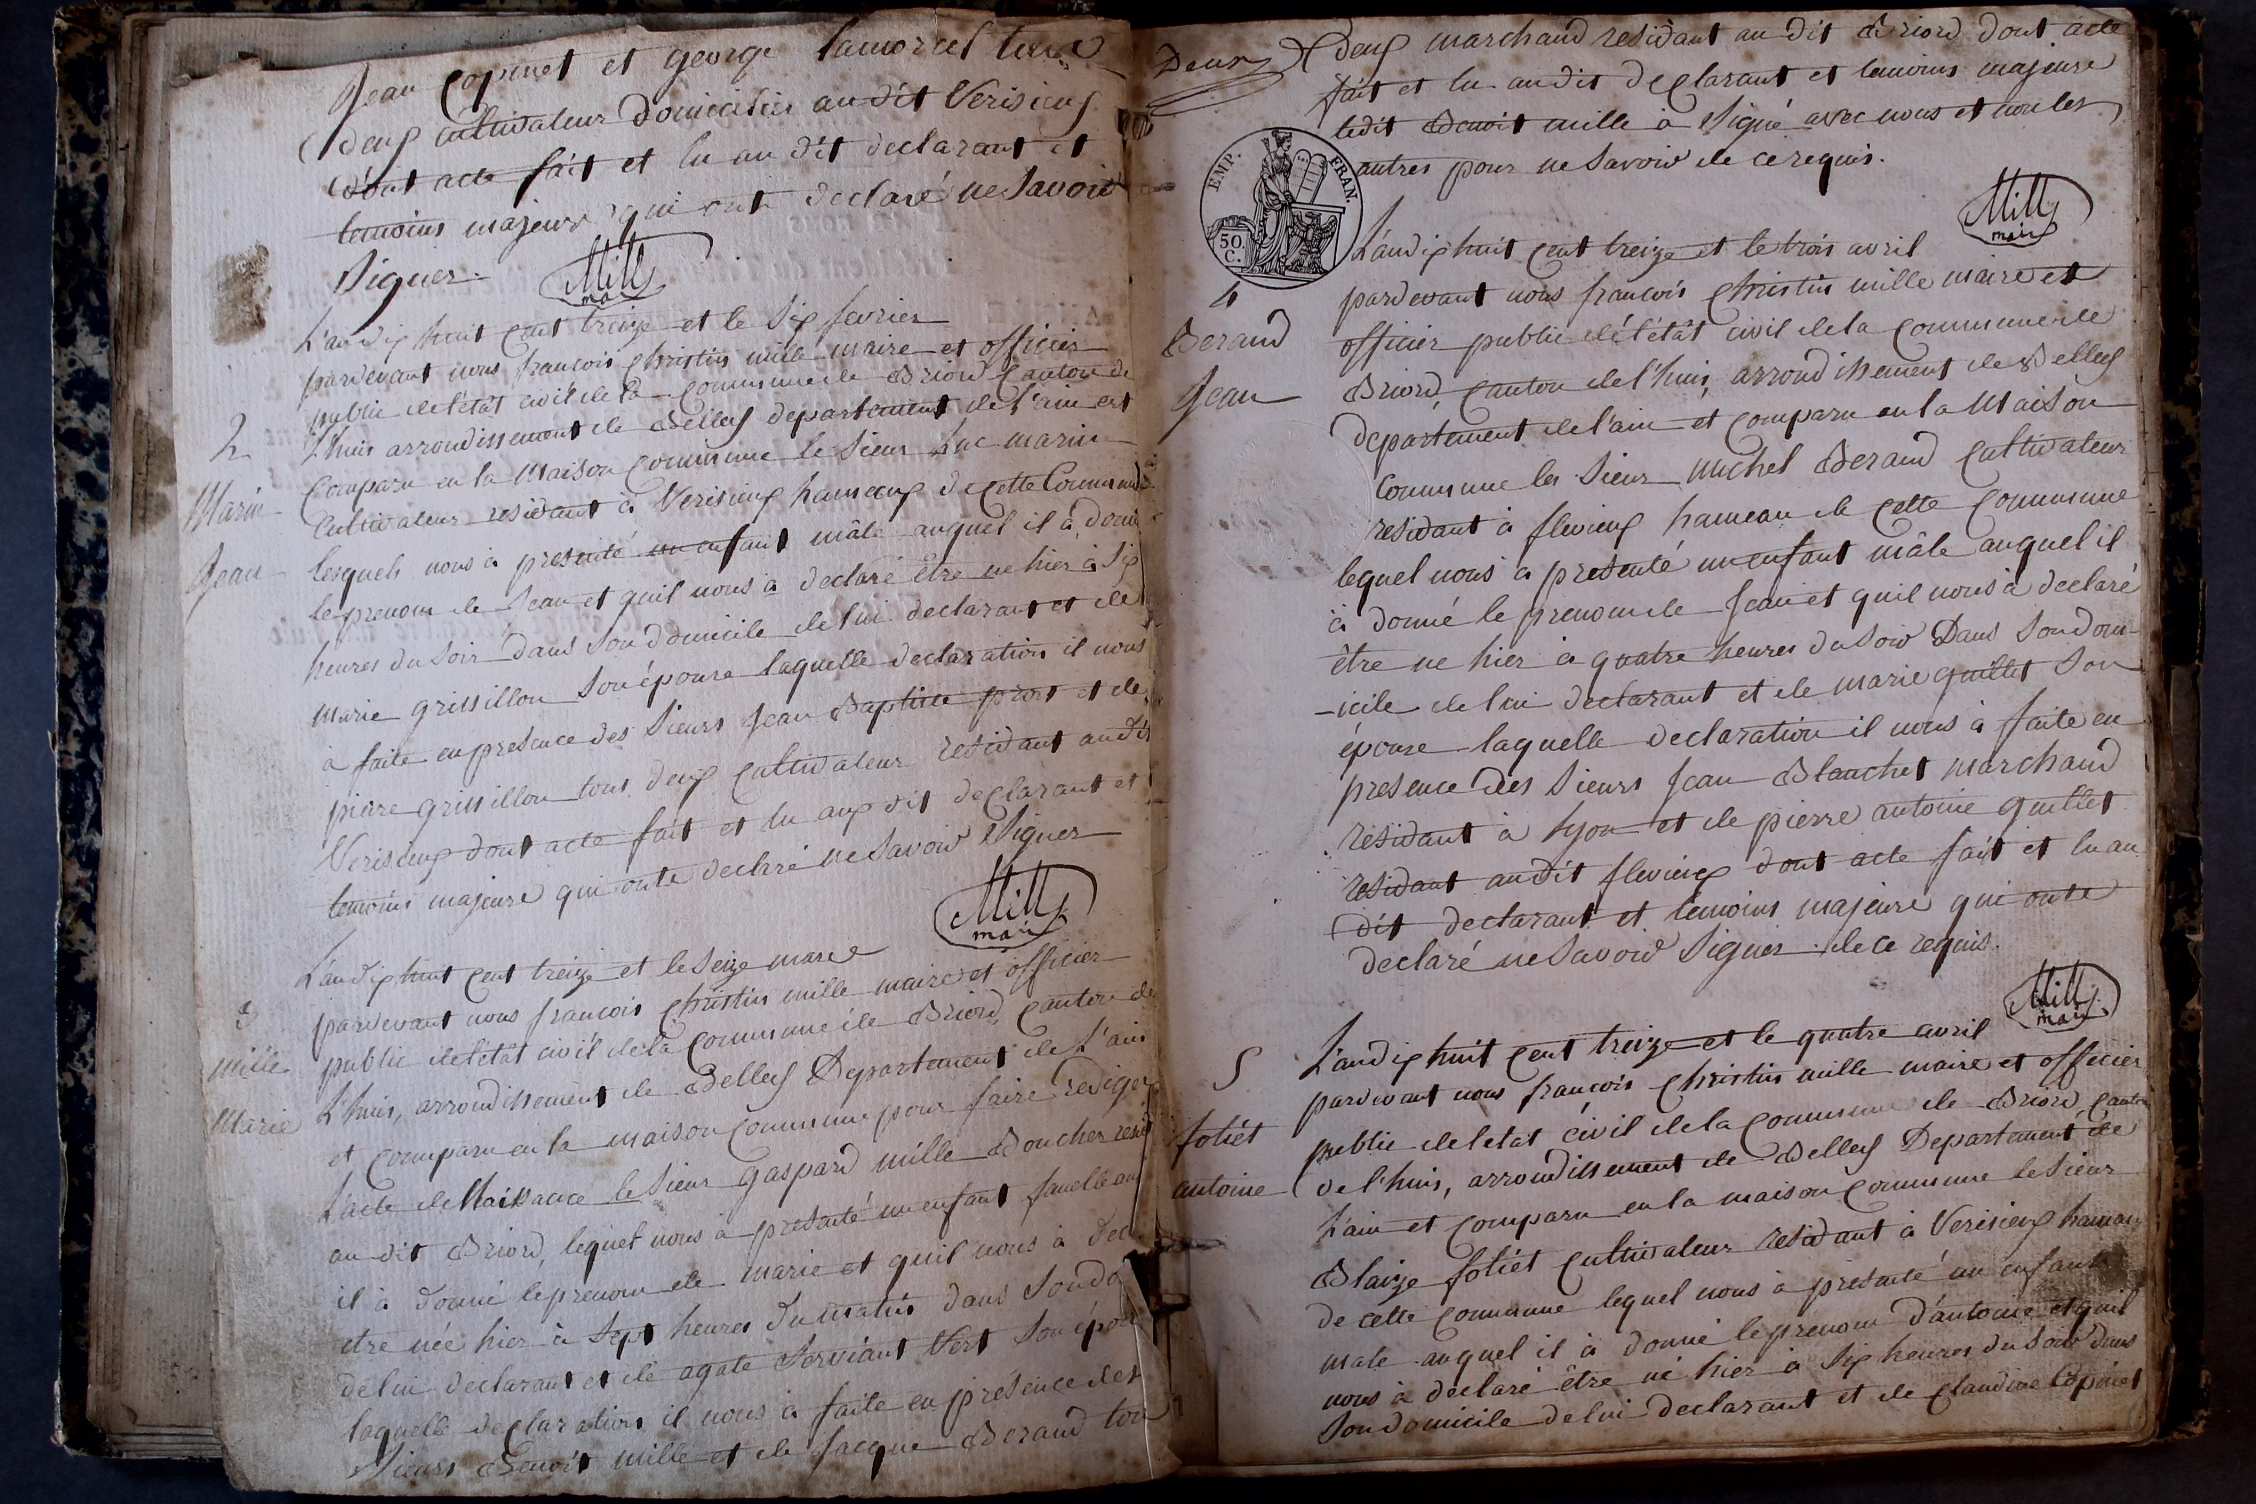 Jean Copinet et george lamorcel tous
deux cultivateur domicilies au dit Verisieux
dont acte fait et lu au dit declarant et
temoins majeurs qui ont declaré ne Savoir
Signer.
Mille
maire
2
Marin
Jean
L'an dix huit cent treize et le Six fevrier
pardevant nous francois Christin mille maire et officier
public de l'etât civil de la commune de Briord Canton de
L'huis arrondissement de Belley departement de l'ain est
Comparu en la Maison Commune le Sieur Luc marin
Cultivateur residant à Verisieux hameaux de cette Commune
lesquels nous à presenté un enfant mâle auquel il à donné
le prenom de Jean et quil nous à declaré être ne hier à Six
heures du Soir dans Son domicile de lui declarant et de
Marie grissillon Son épouse laquelle declaration il nous
à faite en presence des Sieurs Jean Baptiste prost et de
pierre grissillon tous deux Cultivateur residant au dit
Verisieux dont acte fait et lu aux dit declarant et
temoins majeure qui onte declaré ne Savoir Signer
Mille
maire
3
mille
Marie
L'an dix huit cent treize et le Seize mars
pardevant nous francois Christin mille maire et officier
public de l'etât civil de la commune de Briord, Canton de
L'huis, arrondissement de Belley Departement de L'ain
et Comparu en la maison Commune pour faire rediger
L'acte de Naissance le Sieur gaspard mille Boucher resid
au dit Briord, lequel nous à presenté un enfant femelle au
il à donné le prenom de marie et quil nous à decl
etre née hier à Sept heures du matin dans Son do
de lui declarant et de agate Serviant Vert Son épou
laquelle declaration il nous à faite en présence des
Sieurs Benoit mille et de Jacque Beraud tou
Deux
deux marchand residant au dit Briord dont acte
fait et lu au dit declarant et temoins majeure
ledit Benoit mille à Signé avec nous et non les
autres pour ne Savoir de ce requis.
Mille
maire
EMP. FRAN.
50. C.
4
Beraud
Jean
L'an dix huit cent treize et le trois avril
pardevant nous francois Christin mille maire et
officier public de l'étât civil de la Commune de
Briord, Canton de l'huis, arrondissement de Belley
departement de l'ain et comparu en la Maison
Commune les Sieur Michel Beraud Cultivateur
residant à flevieux hameau de cette Commune
lequel nous à presenté un enfant mâle auquel il
à donné le prenom de Jean et quil nous à declaré
être ne hier à quatre heures du Soir Dans Son dom-
-icile de lui declarant et de marie quillet Son
épouse laquelle declaration il nous à faite en
presence des Sieurs Jean Blanchet marchand
residant à Lyon et de pierre antoine quillet
residant au dit flevieux dont acte fait et lu au
dit declarant et temoins majeure qui onte
declaré ne Savoir Signer de ce requis.
Mille
maire.
5
foliét
antoine
L'an dix huit cent treize et le quatre avril
pardevant nous francois Christin mille maire et officier
public de letat civil de la Commune de Briord, Canton
de l'huis, arrondissement de Belley Departement de
L'ain et Comparu en la maison Commune le Sieur
Blaize foliét Cultivateur residant à Verisieux hameau
de cette Commune lequel nous à presenté un enfant
male auquel il à donné le prenom d'antoine et quil
nous à declaré être né hier à Six heures du Soir dans
Son domicile de lui declarant et de Claudine Copinet